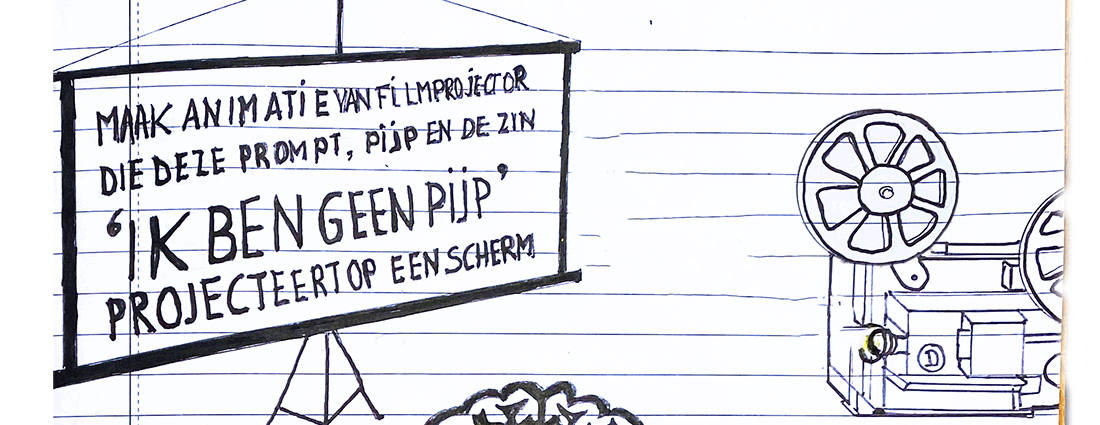 MAAK ANIMATIE VAN FILMPROJECTOR
DIE DEZE PROMPT, PIJP EN DE ZIN
‘IK BEN GEEN PIJP’
PROJECTEERT OP EEN SCHERM
D